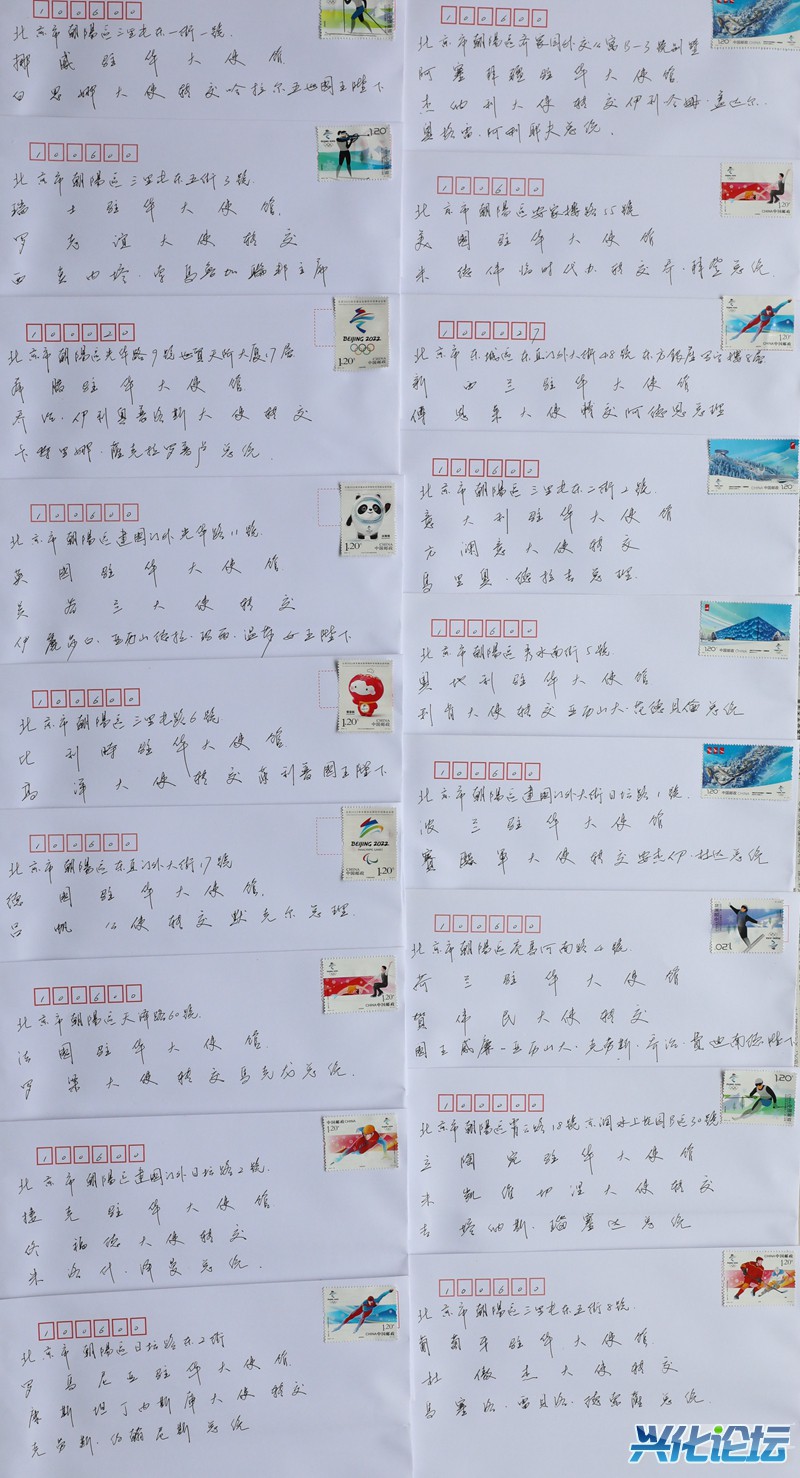 100600
北京市朝陽区三里屯东一街一號
挪威驻华大使馆
白思娜大使转交哈拉尔五世國王陛下
100600
北京市朝陽区三里屯东五街3號
瑞士驻华大使馆
罗志谊大使转交
100022
北京市朝陽区光华路9號世贸天阶大厦17层
希腊驻华大使馆
乔治·伊利奥普洛斯大使转交
卡特里娜·薩克拉罗普卢总统
BEIJING 2022
1.20
100600
北京市朝陽区建國门外光华路11號
英國驻华大使馆
吴若兰大使转交
伊麗莎白·亚历山德拉·玛丽·温莎女王陛下
1.20
100600
北京市朝陽区三里屯路6號
比利時驻华大使馆
高洋大使转交菲利普國王陛下
1.20
100600
北京市朝陽区东直门外大街17號
德國驻华大使馆
吕帆公使转交默克尔总理
BEIJING 2022
1.20
100600
北京市朝陽区天泽路60號
法國驻华大使馆
罗梁大使转交馬克龙总统
100600
北京市朝陽区建國门外日坛路2號
捷克驻华大使馆
佟福德大使转交
米洛什·泽曼总统
100600
北京市朝陽区日坛路东2街
罗馬尼亚驻华大使馆
康斯坦丁内斯库大使转交
克劳斯·约翰尼斯总统
100600
北京市朝陽区齐家园外交公寓B-3號别墅
阿塞拜疆驻华大使馆
杰纳利大使转交伊利哈姆·盖达尔
奥格雷·阿利耶夫总统
100600
北京市朝陽区安家楼路55號
美國驻华大使馆
米德伟临时代办转交乔·拜登总统
100027
北京市东城区东直门外大街48號东方银座写字楼8层
新西兰驻华大使馆
傅恩莱大使转交阿德恩总理
100600
北京市朝陽区三里屯东二街2號
意大利驻华大使馆
方澜意大使转交
馬里奥·德拉吉总理
100600
北京市朝陽区秀水南街5號
奥地利驻华大使馆
利肯大使转交亚历山大·范德贝伦总统
100600
北京市朝陽区建國门外大街日坛路1號
波兰驻华大使馆
赛熙军大使转交安杰伊·杜达总统
100600
北京市朝陽区亮馬河南路4號
荷兰驻华大使馆
賀伟民大使转交
國王威廉-亚历山大·克劳斯·乔治·费迪南德陛下
100600
北京市朝陽区霄云路18號京润水上花园B区30號
立陶宛驻华大使馆
米凯维切涅大使转交
吉塔纳斯·瑙塞达总统
100600
北京市朝陽区三里屯东五街8號
葡萄牙驻华大使馆
杜傲杰大使转交
馬塞洛·雷贝洛·德索薩总统
兴化论坛